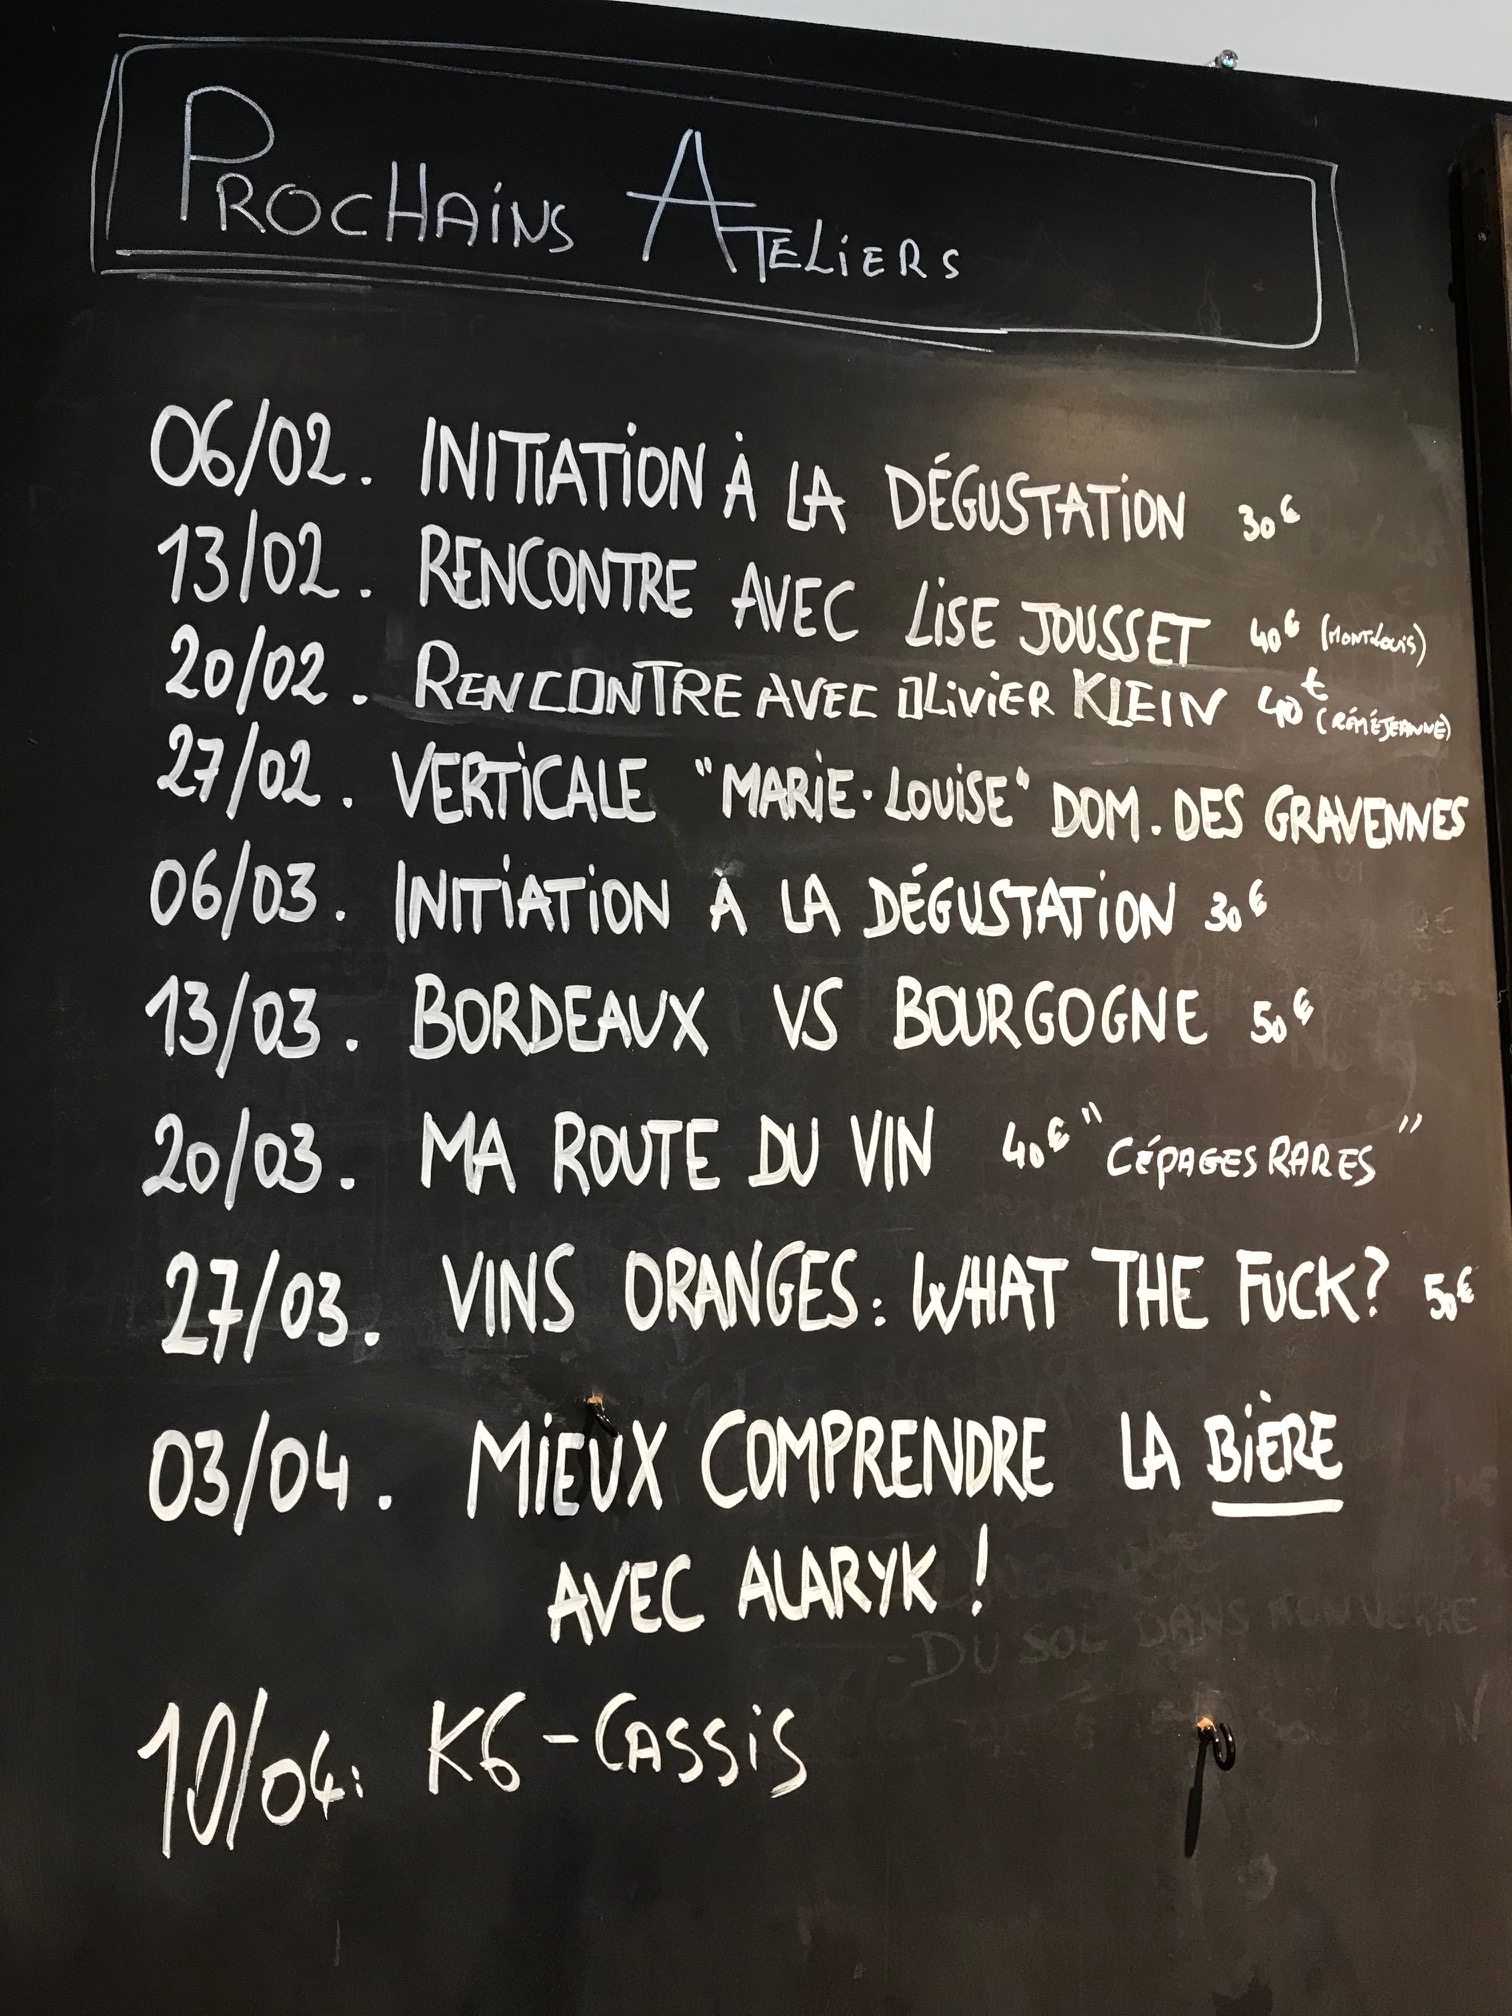 PROCHAINS ATELIERS
06/02. INITIATION À LA DÉGUSTATION 30€
13/02. RENCONTRE AVEC LISE JOUSSET 40€ (MONTLOUIS)
20/02. RENCONTRE AVEC OLIVIER KLEIN 40€ (RÉMÉJEANNE)
27/02. VERTICALE "MARIE-LOUISE" DOM. DES GRAVENNES
06/03. INITIATION À LA DÉGUSTATION 30€
13/03. BORDEAUX VS BOURGOGNE 50€
20/03. MA ROUTE DU VIN 40€ "CÉPAGES RARES"
27/03. VINS ORANGES: WHAT THE FUCK? 50€
03/04. MIEUX COMPRENDRE LA BIÈRE
AVEC ALARYK !
- DU SOL DANS MON
10/04: K6-CASSIS